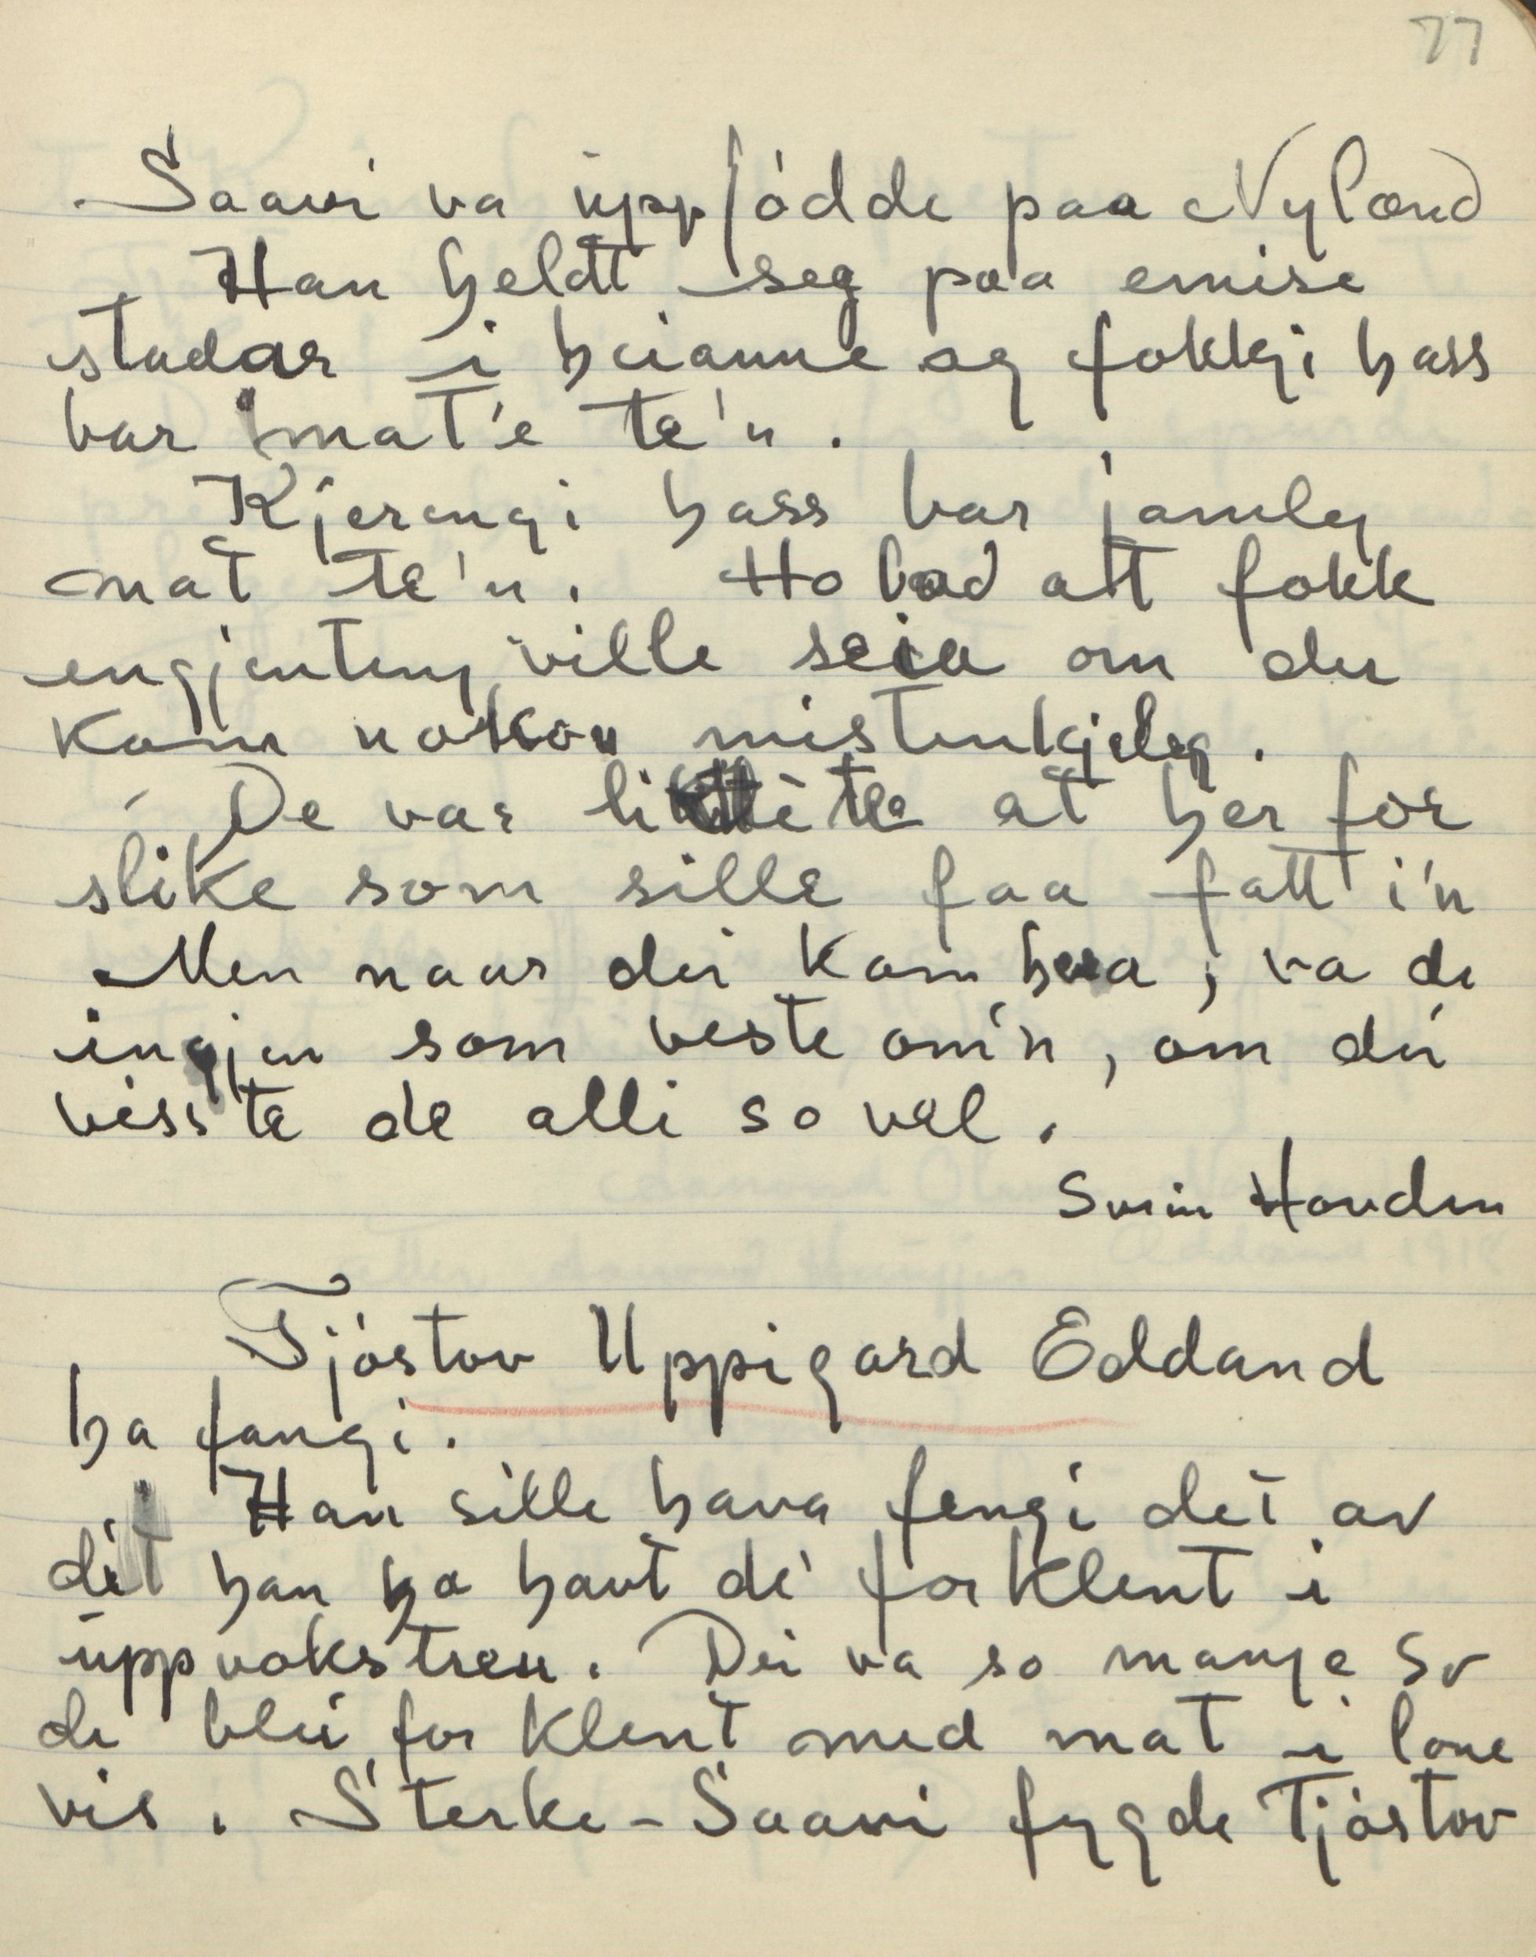 77
Saavi va uppfódde paa Nyland
Han heldt seg paa emise
stadar i heianne og fokkji hass
bar mat'e te'n.
Kjeringi hass bar jamleg
mat te'n. Ho bad att fokk
engjenteng ville seia om der
kom nokon mistenkjeleg.
De var te at her for
slike som sille faa fatt i'n
Men naar dei kom hera, va de
ingjen som veste om'n, om dei
visste de alli so vel.
Svein Hovden
Tjóstov Uppigard Eddand
ha fangi.
Han sille hava fengi det av
dit han ha havt de' forklent i
uppvokstren. Dei va so manje so
de blei for klent med mat i lone
vis. Sterke-Saavi fygde Tjóstov